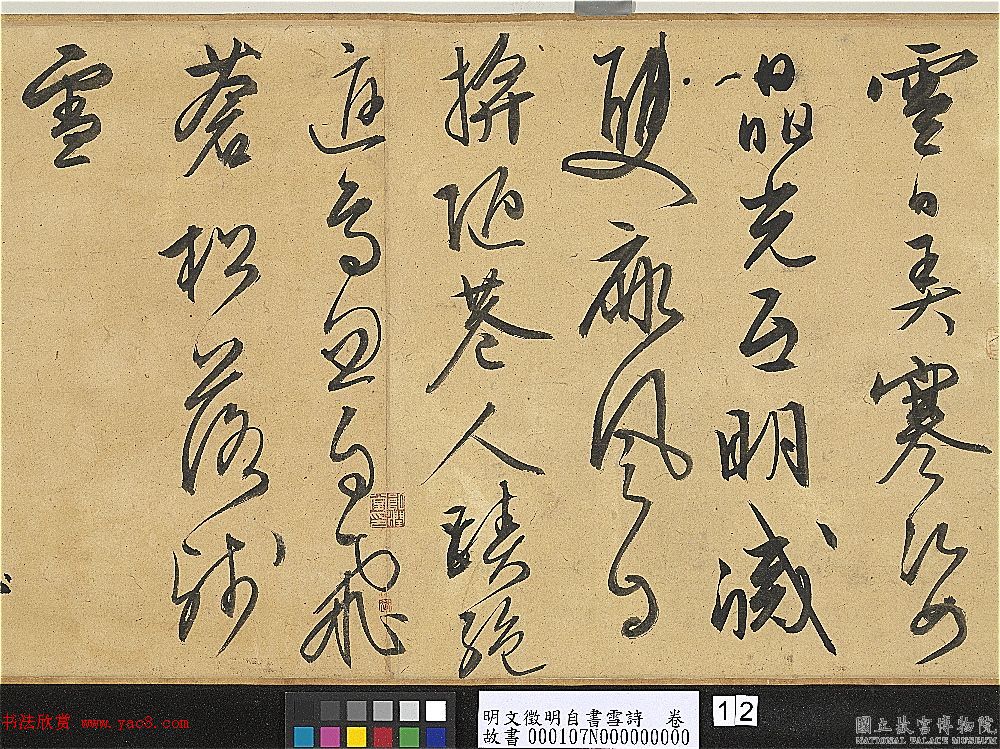 雲日弄寒姿
晶光互明滅
雙扉風自
掩陋巷人蹟絕
庭鳥忽自飛
蒼松落殘
雪
书法欣赏 www.yac8.com
明文徵明自書雪詩 卷
故書 000107N000000000
12
國立故宮博物院
NATIONAL PALACE MUSEUM